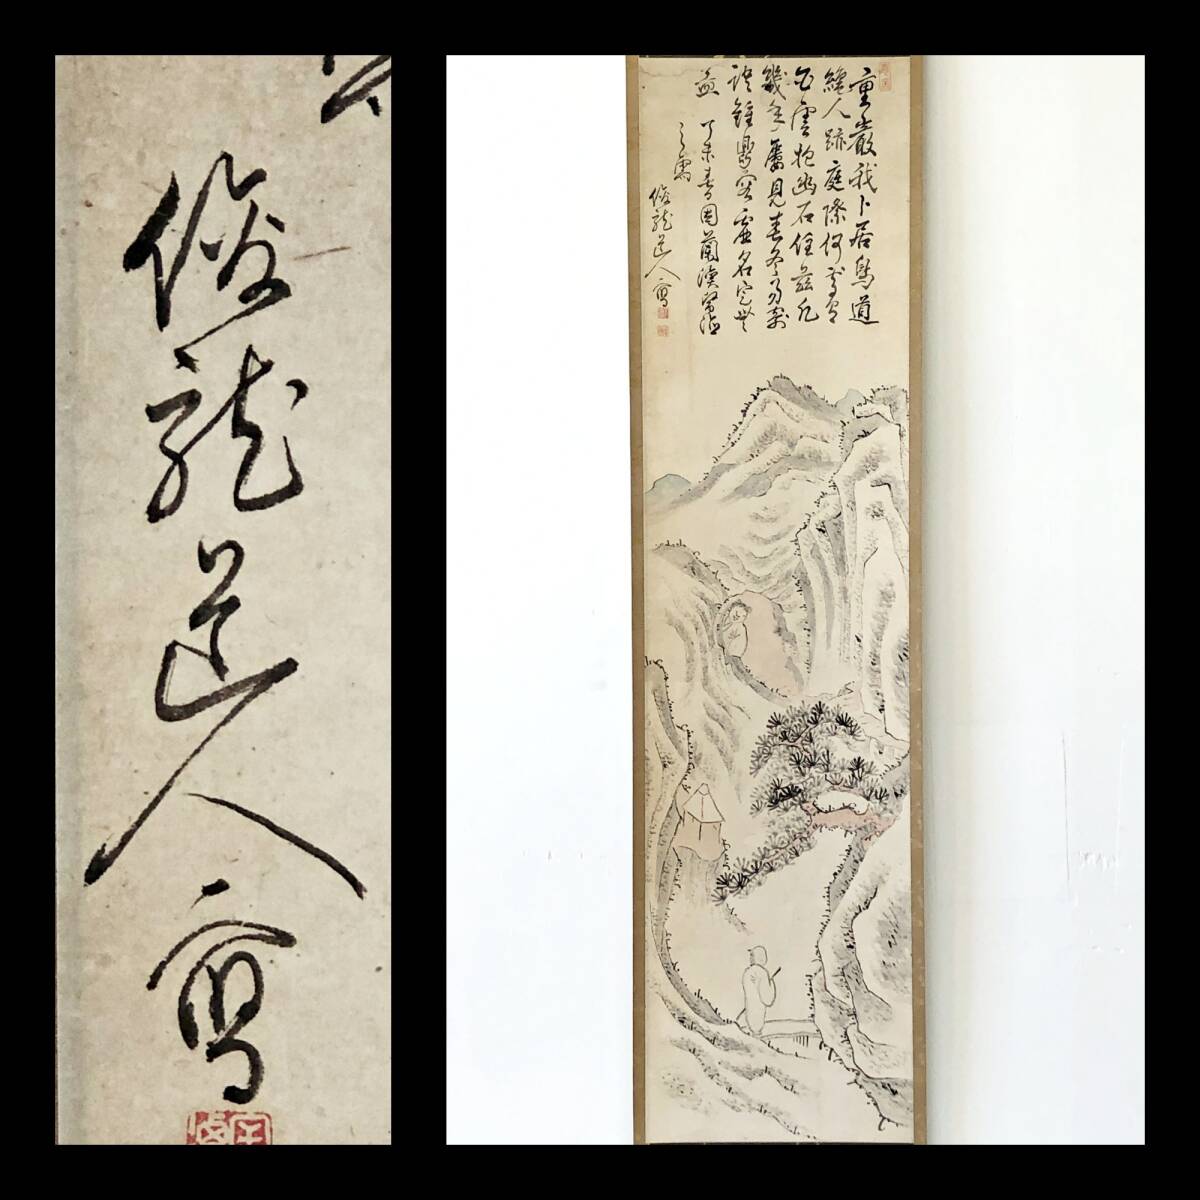 俊龍道人写
重巖我卜居鳥道
絶人跡庭際何所有
白雲抱幽石住茲凡
幾年屢見春冬易寄
語鐘鼎家虚名定無
益 丁未春因蘭渓
之需
俊龍道人写